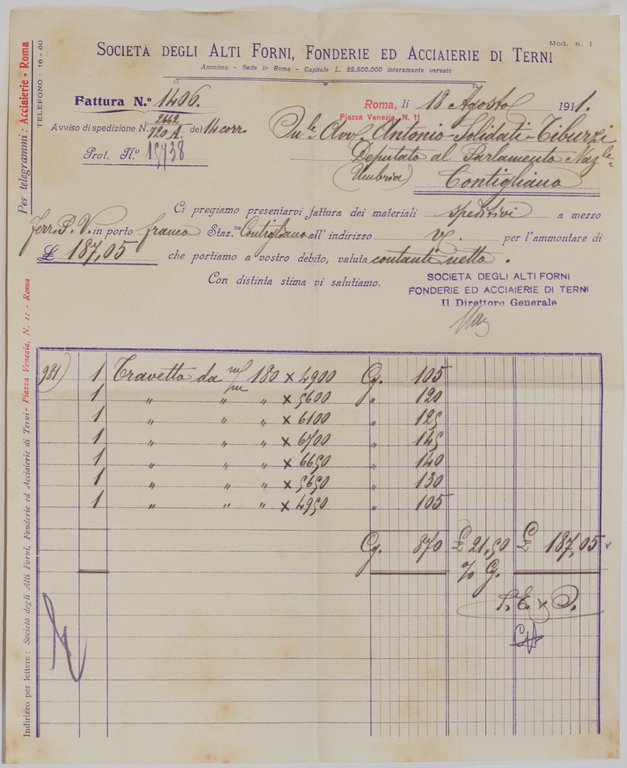 Mod. n. 1
SOCIETÀ DEGLI ALTI FORNI, FONDERIE ED ACCIAIERIE DI TERNI
Anonima - Sede in Roma - Capitale L. 22.500.000 interamente versato
Per telegrammi: Acciaierie - Roma
TELEFONO: 18-60
Fattura N.º 1406.
Roma, li 18 Agosto 1911.
Piazza Venezia, N. 11
Avviso di spedizione N. 2662 120 A. del 14 corr.
Prot. N.º 15438
On.le Avv. Antonio Solidati-Tiburzi
Deputato al Parlamento Naz.le
(Umbria) Contigliano
Ci pregiamo presentarvi fattura dei materiali speditivi a mezzo
Ferr. P. V. in porto franco Staz.ne Contigliano all' indirizzo v/. per l'ammontare di
£ 187,05 che portiamo a vostro debito, valuta contanti netto.
Con distinta stima vi salutiamo.
SOCIETÀ DEGLI ALTI FORNI
FONDERIE ED ACCIAIERIE DI TERNI
Il Direttore Generale
Indirizzo per lettere: Società degli Alti Forni, Fonderie ed Acciaierie di Terni - Piazza Venezia, N. 11 - Roma
981) 1 Travetto da m/m 180 × 4900 Cg. 105
1 " " " × 5600 " 120
1 " " " × 6100 " 125
1 " " " × 6700 " 145
1 " " " × 6650 " 140
1 " " " × 5650 " 130
1 " " " × 4950 " 105
Cg. 870 £ 21,50 £ 187,05
% Cg.
S. E. × O.